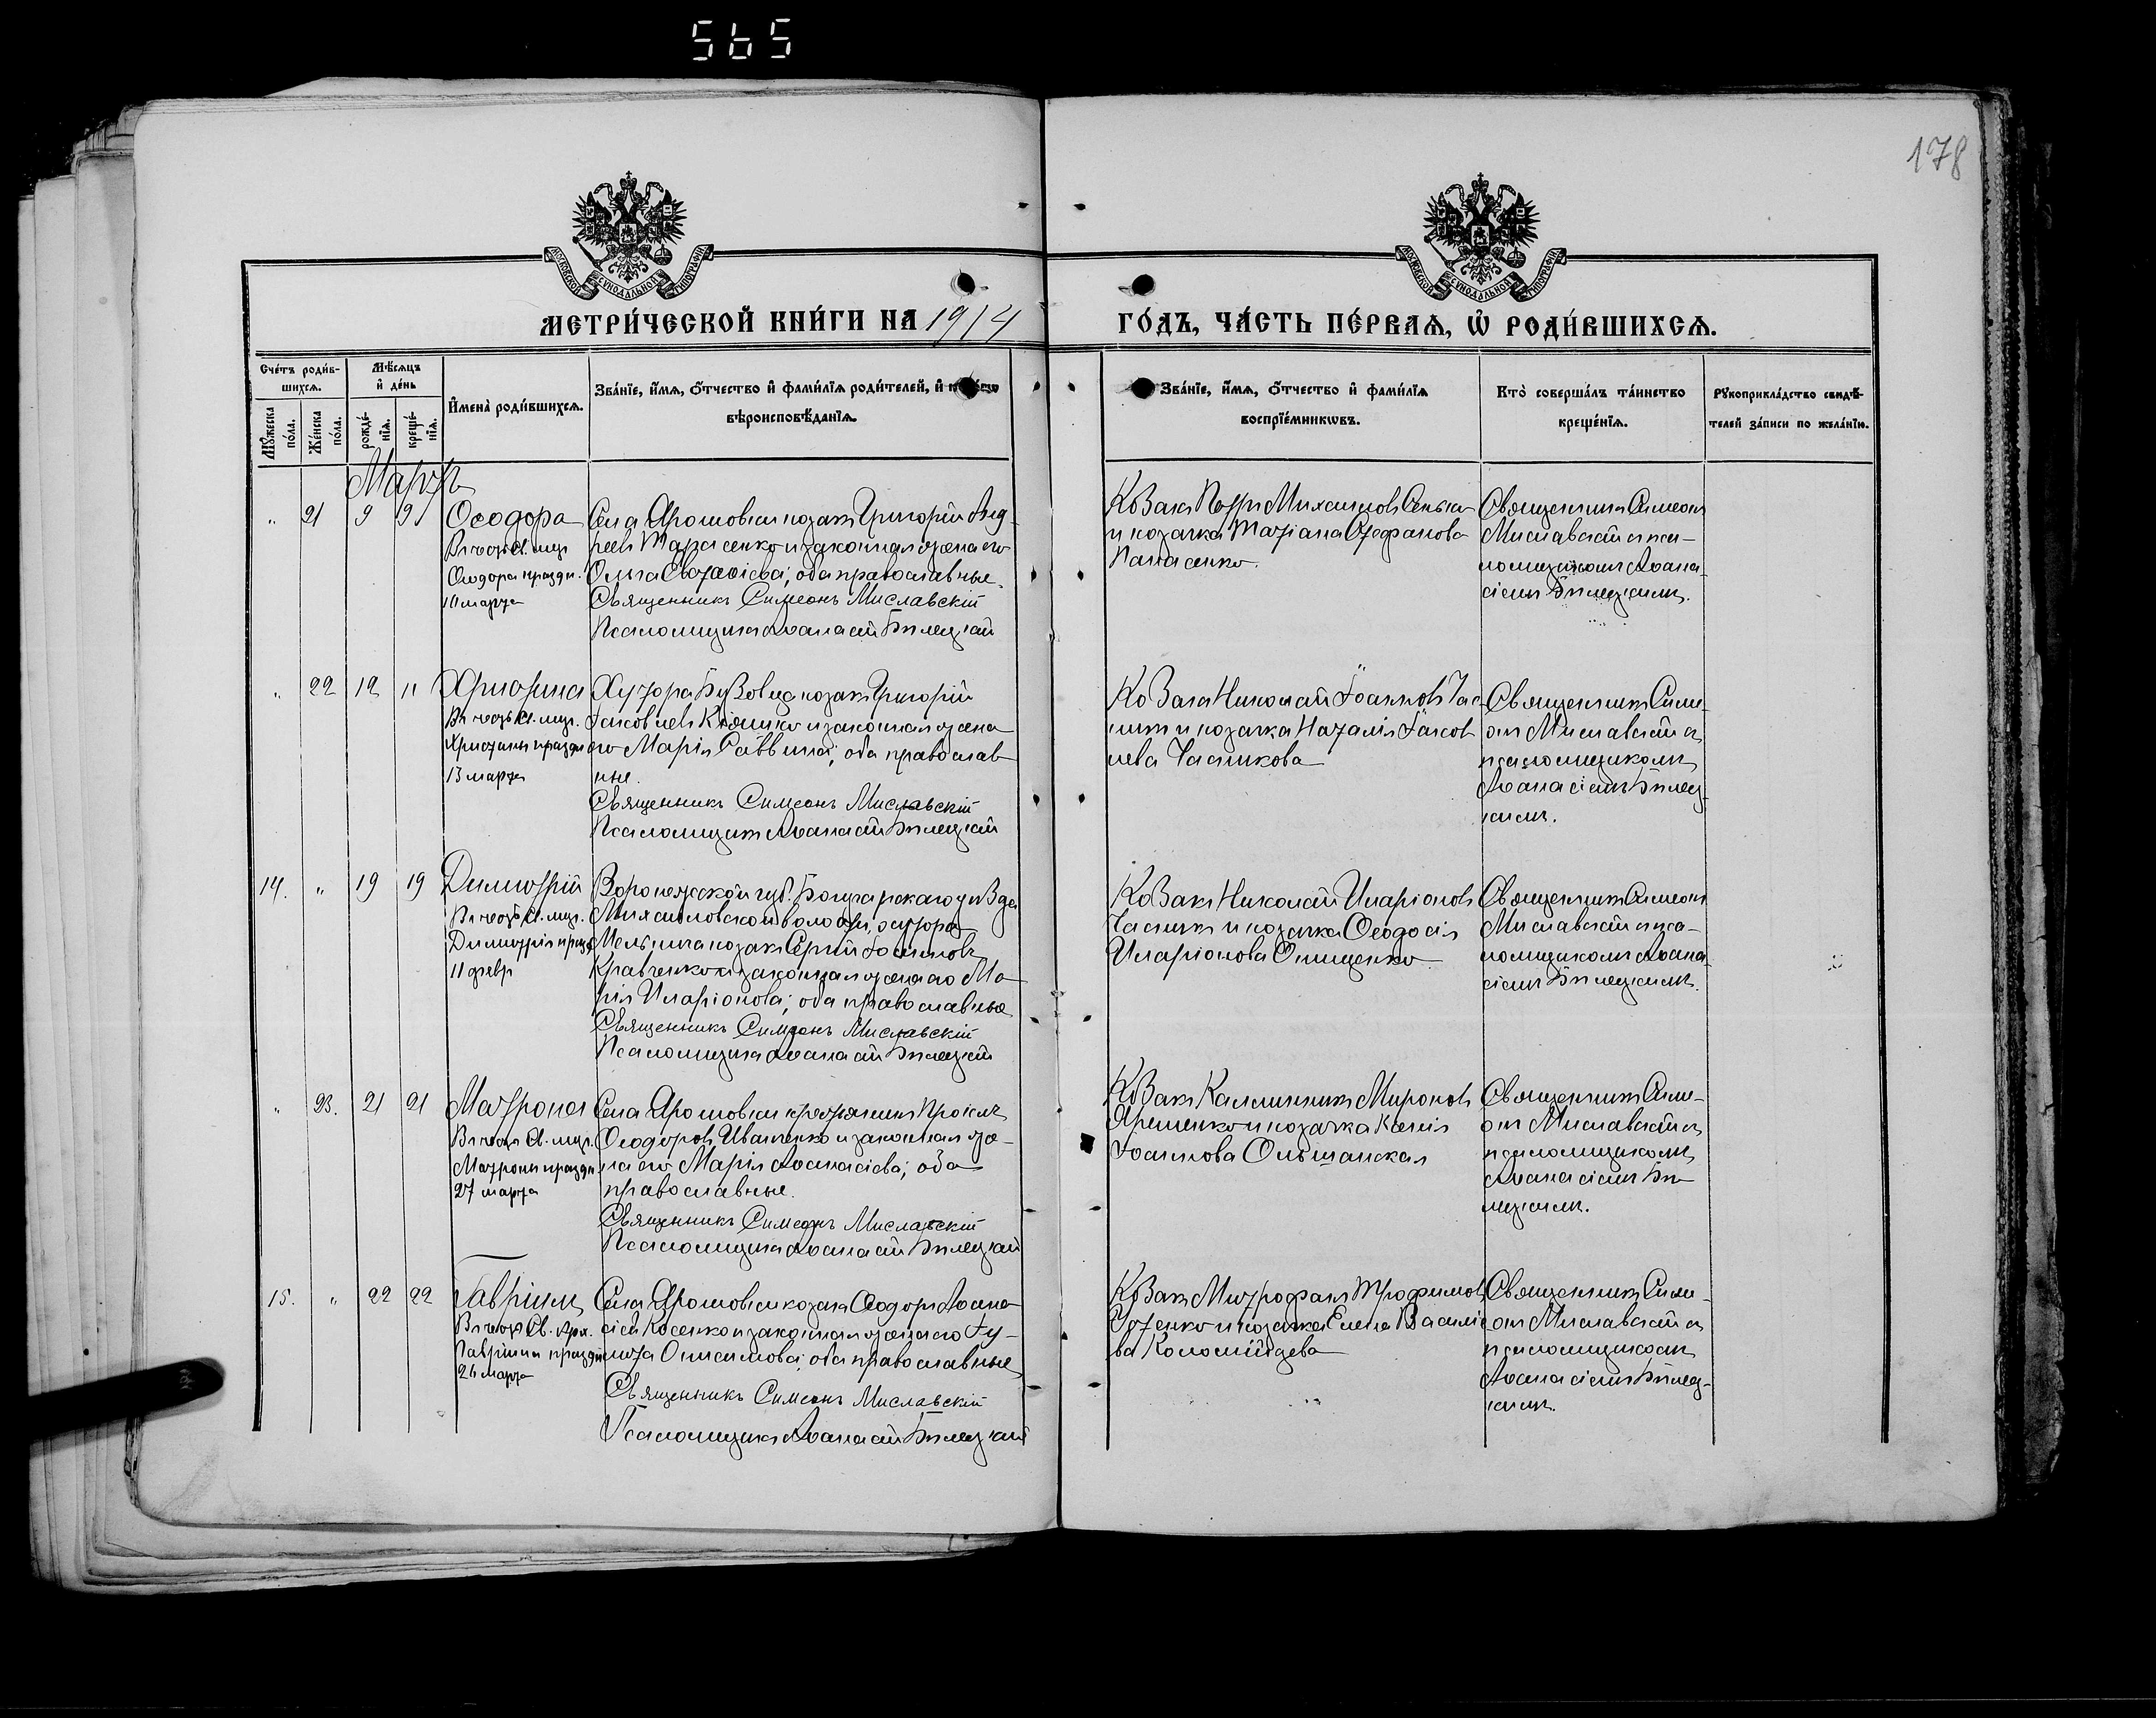 565
178
МОСКОВСКОЙ СУНОДАЛЬНОЙ ТИПОГРАФІИ
МОСКОВСКОЙ СУНОДАЛЬНОЙ ТИПОГРАФІИ
МЕТРИ́ЧЕСКОЙ КНИ́ГИ НА 1914
ГО́ДЪ, ЧА́СТЬ ПЕ́РВАѦ, Ѡ РОДИ́ВШИХСѦ.
Сче́тъ роди́в-
шихсѧ.
Мѣ́сѧцъ
и де́нь
Мꙋ́жеска по́ла.
Же́нска по́ла.
рожде́-
нїѧ.
креще́-
нїѧ.
И҆мена̀ роди́вшихсѧ.
Зва́нїе, и҆́мѧ, ѻ҆́тчество и҆ фами́лїѧ роди́телей, и҆
вѣроисповѣ́данїѧ.
Зва́нїе, и҆́мѧ, ѻ҆́тчество и҆ фами́лїѧ
воспрїе́мникѡвъ.
Кто̀ соверша́лъ та́инство
креще́нїѧ.
Рꙋкоприкла́дство свидѣ́-
телей за́писи по жела́нїю.
Мартъ
„ 21 9 9 Ѳеодора
Въ честь св. муч.
Ѳеодоры праздн.
10 марта
Села Ярошовки козакъ Григорій Анд-
реевъ Тарасенко и законная жена его
Ольга Евстафіева; оба православные.
Священникъ Симеонъ Миславскій
Псаломщикъ Аѳанасій Билецкій
Козакъ Петръ Михаиловъ Сенько
и козачка Татіана Стефанова
Панасенко.
Священникъ Симеонъ
Миславскій съ пса-
ломщикомъ Аѳана-
сіемъ Билецкимъ.
„ 22 12 „ Христина
Въ честь св. муч.
Христины праздн
13 марта
Хутора Григорій
Іаковлевъ и законная жена
его Марія Саввина; оба православ-
ные.
Священникъ Симеонъ Миславскій
Псаломщикъ Аѳанасій Билецкій
Козакъ Николай Іоанновъ Час-
никъ и козачка Наталія Іаков-
лева Часникова
Священникъ Симе-
онъ Миславскій съ
псаломщикомъ
Аѳанасіемъ Билец-
кимъ.
14. „ 19 19 Димитрій
Въ честь св. муч.
Димитрія празд
11 февр
Воронежской губ. Богучарскаго уѣзда
Михаиловской волости, хутора
Мельника козакъ Сергій Іоанновъ
Кравченко и законная жена его Ма-
рія Иларіонова; оба православные
Священникъ Симеонъ Миславскій
Псаломщикъ Аѳанасій Билецкій
Козакъ Николай Иларіоновъ
Часникъ и козачка Ѳеодосія
Иларіонова Онищенко
Священникъ Симеонъ
Миславскій съ пса-
ломщикомъ Аѳана-
сіемъ Билецкимъ.
„ 23. 21 21 Матрона
Въ честь св. муч.
Матроны праздн.
27 марта
Села Ярошовки крестьянинъ Проклъ
Ѳеодоровъ Иващенко и законная же-
на его Марія Аѳанасіева; оба
православные.
Священникъ Симеонъ Миславскій
Псаломщикъ Аѳанасій Билецкій
Козакъ Каллинникъ Мироновъ
Яременко и козачка Ксенія
Іоаннова Ольшанская
Священникъ Симе-
онъ Миславскій съ
псаломщикомъ
Аѳанасіемъ Би-
лецкимъ.
15. „ 22 22 Гавріилъ
Въ честь св. Арх.
Гавріила праздн
26 марта
Села Ярошовки козакъ Ѳеодоръ Аѳана-
сіевъ Косенко и законная жена его Іу-
литта Онисимова; оба православные
Священникъ Симеонъ Миславскій
Псаломщикъ Аѳанасій Билецкій
Козакъ Митрофанъ Трофимовъ
и козачка Елена Василіе-
ва Коломійцева
Священникъ Симе-
онъ Миславскій съ
псаломщикомъ
Аѳанасіемъ Билец-
кимъ.